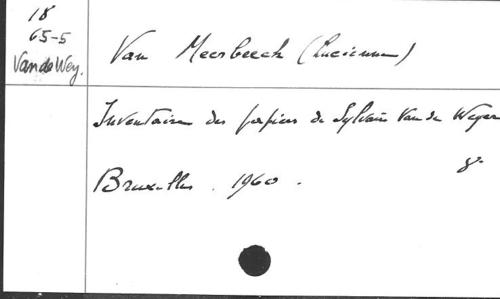 18
65-5
Van de Wey.
Van Meerbeeck (Lucienne)
Inventaire des papiers de Sylvain Van de Weyer
8°
Bruxelles . 1960 .